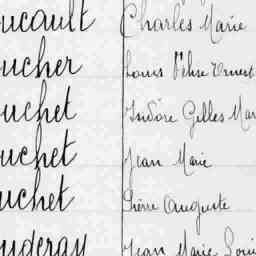 ucault Charles Marie
ucher Louis Ernest
uchet Isidore Gilles Mar
uchet Jean Marie
uchet Pierre Auguste
uderay Jean Marie Loui